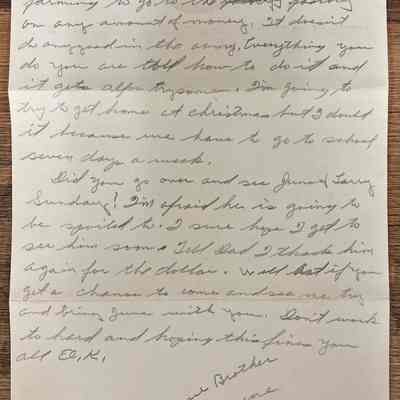 farming to go to the
on any amount of money. It doesn't
do any good in the army, Everything you
do you are told how to do it and
it gets alful trysome. I'm going to
try to get home at Christmas but I doubt
it because we have to go to school
seven days a week.
Did you go over and see June & Larry
Sunday? I'm afraid he is going to
be spoiled to. I sure hope I get to
see him soon. Tell Dad I thank him
again for the dollar. Well if you
get a chance to come and see me try
and bring June with you. Don't work
to hard and hoping this fines you
all O.K.
Brother